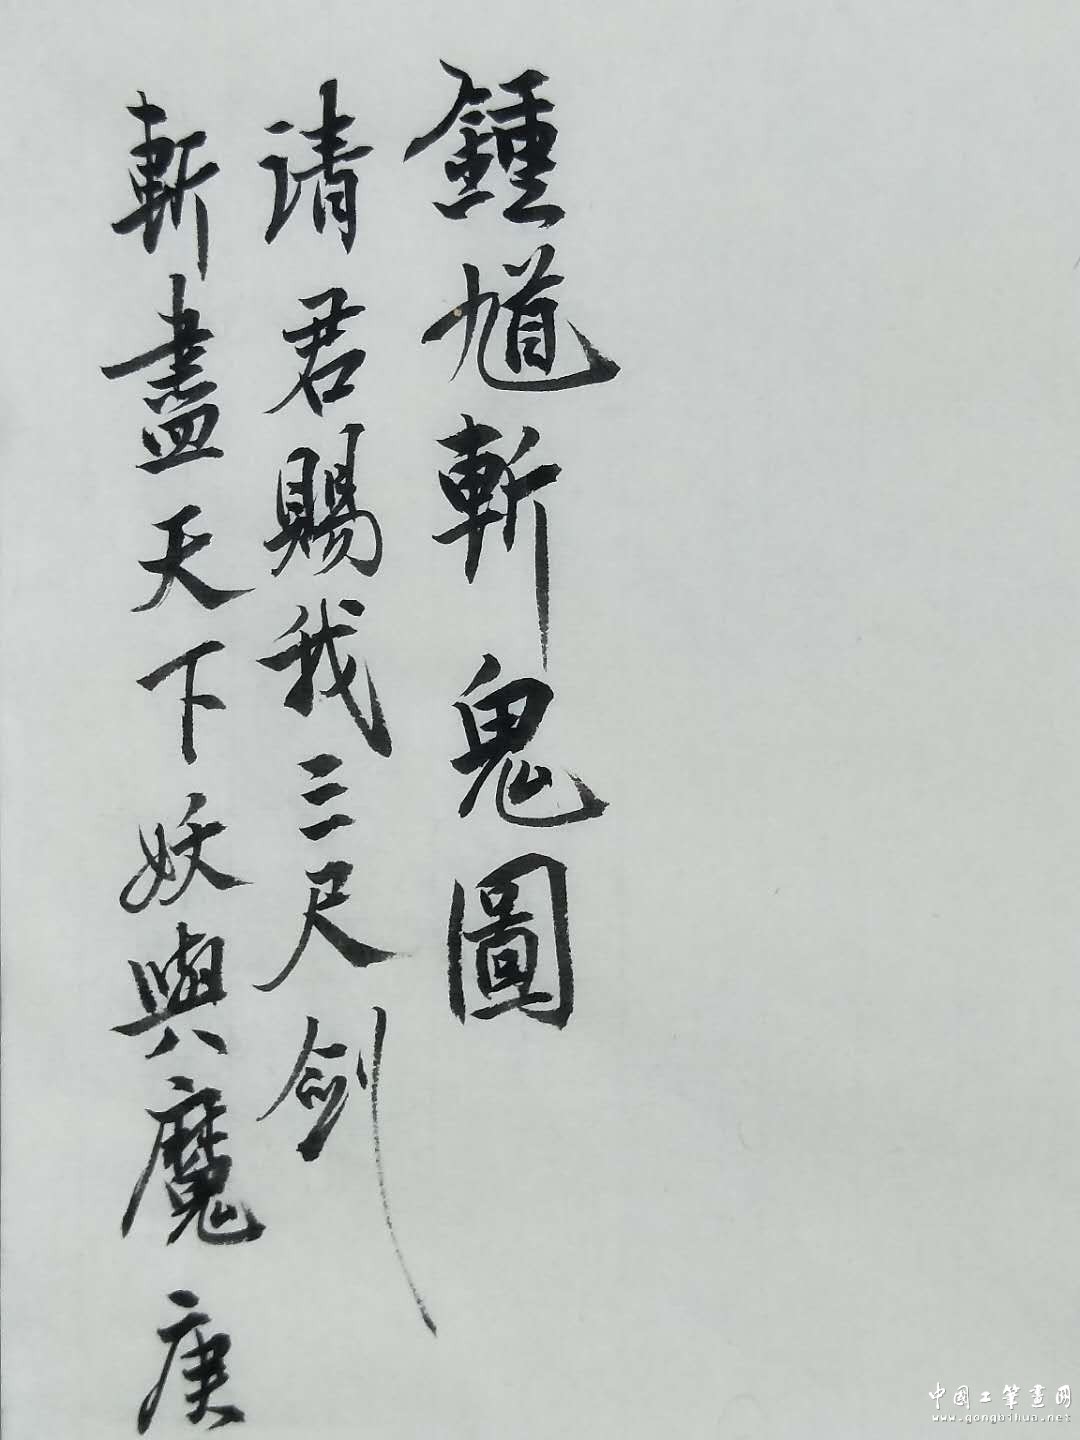 鍾馗斬鬼圖
请君賜我三尺剑
斬盡天下妖與魔 庚
中國工筆畫网
www.gongbihua.net